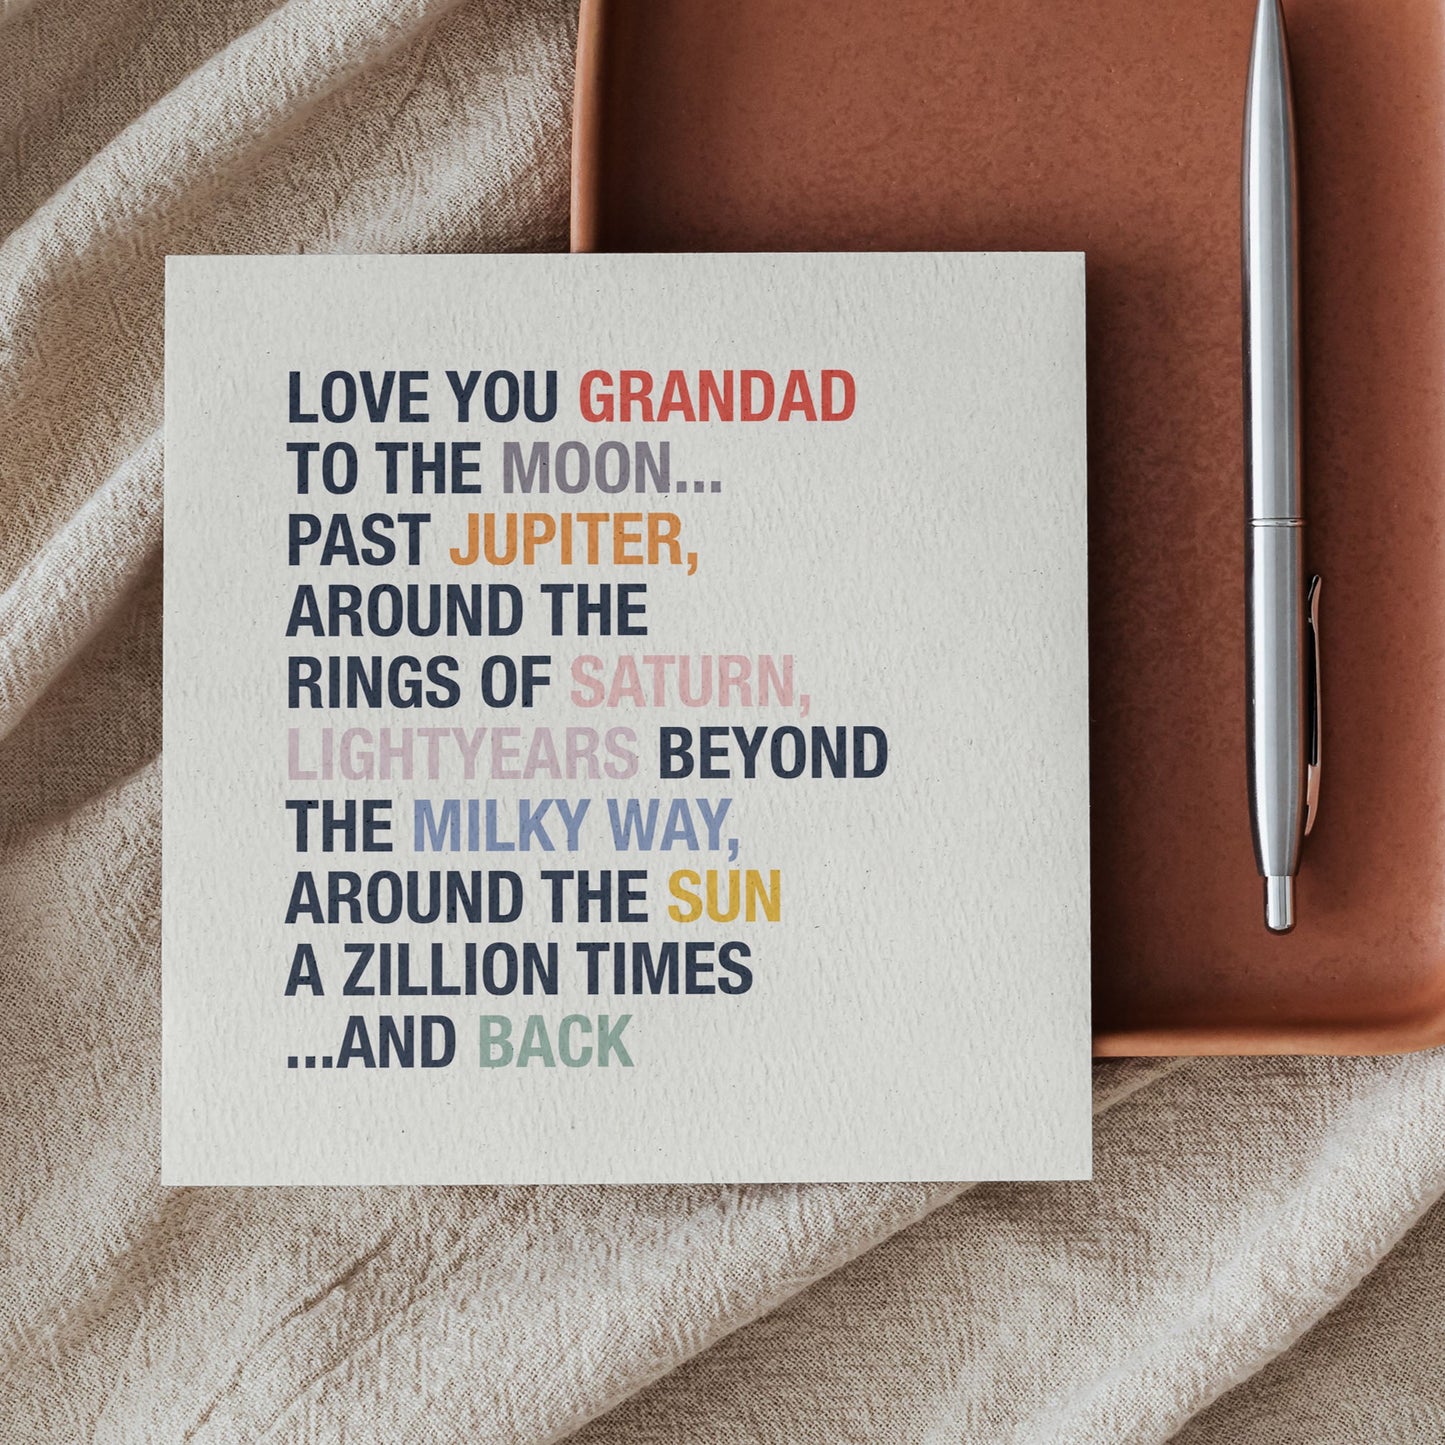 LOVE YOU GRANDAD
TO THE MOON...
PAST JUPITER,
AROUND THE
RINGS OF SATURN,
LIGHTYEARS BEYOND
THE MILKY WAY,
AROUND THE SUN
A ZILLION TIMES
...AND BACK